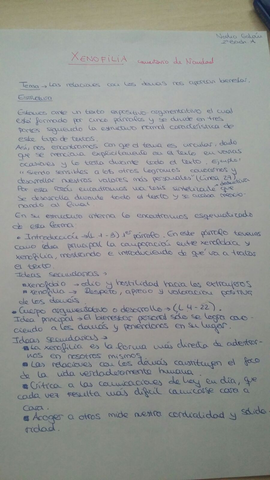 Nadia
2º Bach A
XENOFILIA comentario de Navidad
Tema → Las relaciones con los demás nos aportan bienestar.
Estructura
Estamos ante un texto expositivo argumentativo el cual
está formado por cinco párrafos y se divide en tres
partes siguiendo la estructura normal característica de
este tipo de textos.
Así nos encontramos con que el tema es circular, dado
que se menciona explícitamente en el texto en varias
ocasiones y lo trata durante todo el texto, ejemplo:
"Siendo sensibles a los otros logramos conocernos y
desarrollar nuestros valores más personales" (Línea 19).
Por esta razón encontramos una tesis
se desarrolla durante todo el texto y se vuelve
al final.
En su estructura interna lo encontramos esquematizado
de esta forma:
• Introducción (L 1-3) 1er párrafo. En este párrafo tenemos
como idea principal la comparación entre xenofobia y
xenofilia, mediando e introduciendo de qué va a tratar
el texto.
Ideas Secundarias →
•xenofobia → odio y hostilidad hacia los extranjeros
•xenofilia → respeto, aprecio y valoración positiva
de los demás
• Cuerpo argumentativo o desarrollo → (L 4-22).
Idea principal → El bienestar personal solo se logra cono-
ciendo a los demás y poniéndonos en su lugar.
Ideas secundarias →
• La xenofilia es la forma más directa de adentrar-
nos en nosotros mismos.
• Las relaciones con los demás constituyen el foco
de la vida verdaderamente humana.
• Crítica a las comunicaciones de hoy en día, que
cada vez resulta más difícil comunicarse cara a
cara.
• Acoger a otros mide nuestra cordialidad y solida
ridad.